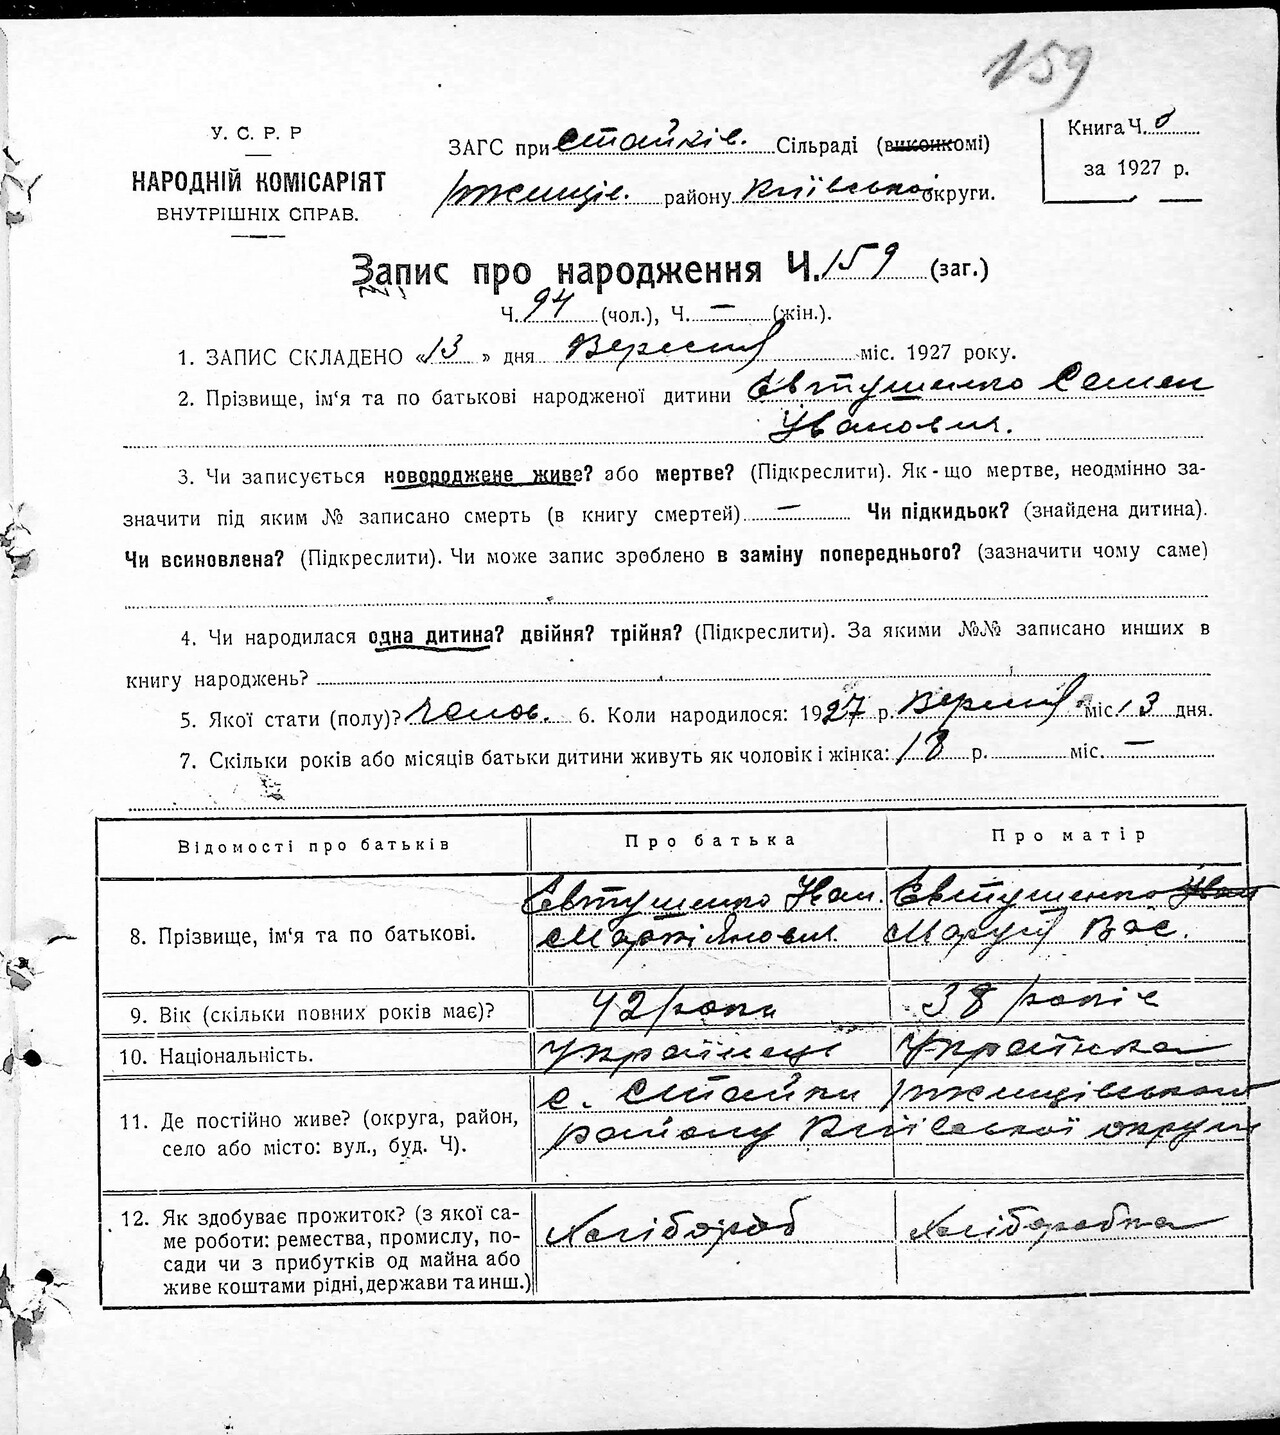 159
У. С. Р. Р
НАРОДНІЙ КОМІСАРІЯТ
ВНУТРІШНІХ СПРАВ.
ЗАГС при Стайків. Сільраді (виконкомі)
Ржищів. району Київської округи.
Книга Ч.
за 1927 р.
Запис про народження Ч. 159 (заг.)
Ч. 94 (чол.), Ч. — (жін.).
1. ЗАПИС СКЛАДЕНО «13» дня Вересня міс. 1927 року.
2. Прізвище, ім‘я та по батькові народженої дитини Євтушенко Семен
Іванович.
3. Чи записується новороджене живе? або мертве? (Підкреслити). Як-що мертве, неодмінно за-
значити під яким № записано смерть (в книгу смертей) — Чи підкидьок? (знайдена дитина).
Чи всиновлена? (Підкреслити). Чи може запис зроблено в заміну попереднього? (зазначити чому саме)
4. Чи народилася одна дитина? двійня? трійня? (Підкреслити). За якими №№ записано инших в
книгу народжень?
5. Якої стати (полу)? Чолов. 6. Коли народилося: 1927 р. Вересня міс. 13 дня.
7. Скільки років або місяців батьки дитини живуть як чоловік і жінка: 18 р. міс. —
Відомості про батьків Про батька Про матір
8. Прізвище, ім‘я та по батькові.
Євтушенко Іван Євтушенко Іван
Маркіянович. Маруся Вас.
9. Вік (скільки повних років має)? 42 роки 38 років
10. Національність. Українець Українка
11. Де постійно живе? (округа, район,
село або місто: вул., буд. Ч).
с. Стайки Ржищівського
району Київської округи
12. Як здобуває прожиток? (з якої са-
ме роботи: ремества, промислу, по-
сади чи з прибутків од майна або
живе коштами рідні, держави та инш.)
Хлібороб Хліборобка